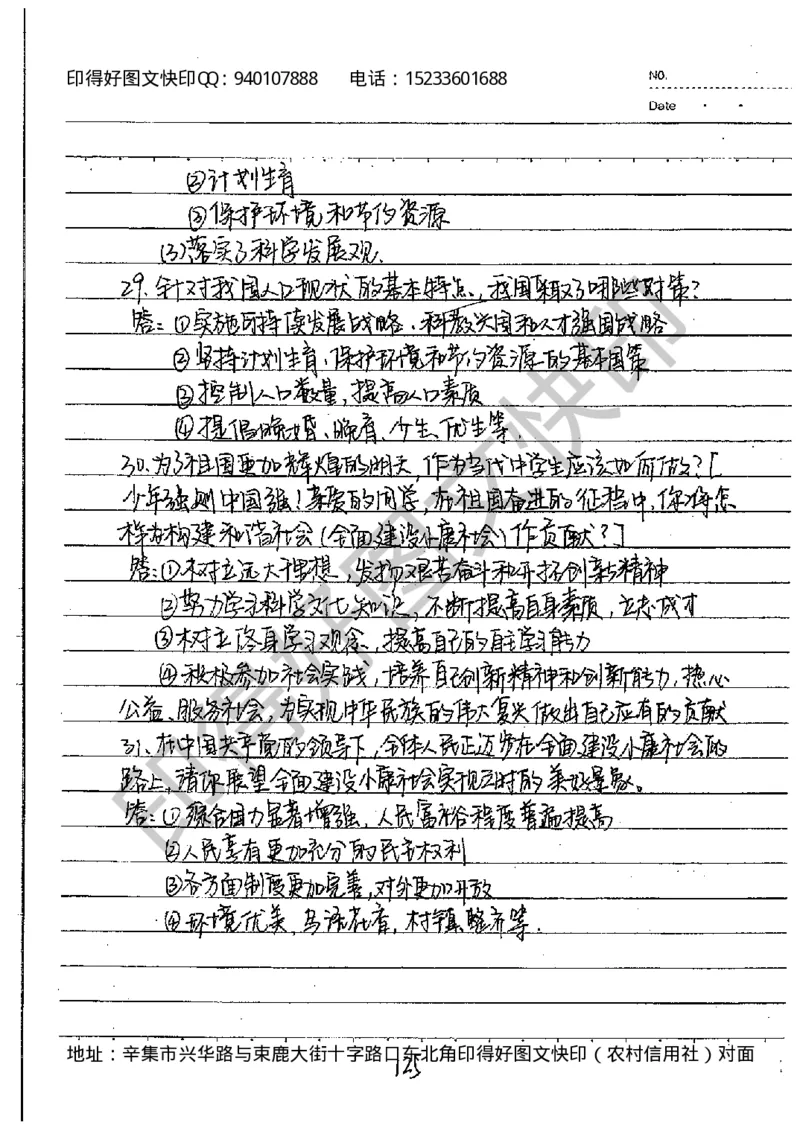 印得好图文快印QQ：940107888 电话：15233601688
NO.
Date
②计划生育
③保护环境和节约资源
(3)落实了科学发展观.
29.针对我国人口现状的基本特点，我国采取了哪些对策？
答：①实施可持续发展战略、科教兴国和人才强国战略
②坚持计划生育、保护环境和节约资源的基本国策
③控制人口数量，提高人口素质
④提倡晚婚、晚育、少生、优生等.
30.为了祖国更加辉煌的明天，作为当代中学生应该如何做？[
少年强则中国强！亲爱的同学，在祖国奋进的征程中，你将怎
样为构建和谐社会（全面建设小康社会）作贡献？]
答：①树立远大理想，发扬艰苦奋斗和开拓创新精神
②努力学习科学文化知识，不断提高自身素质，立志成才
③树立终身学习观念，提高自己的自主学习能力
④积极参加社会实践，培养自己创新精神和创新能力，热心
公益、服务社会，为实现中华民族的伟大复兴做出自己应有的贡献
31、在中国共产党的领导下，全体人民正迈步在全面建设小康社会的
路上，请你展望全面建设小康社会实现之时的美好景象。
答：①综合国力显著增强，人民富裕程度普遍提高
②人民享有更加充分的民主权利
③各方面制度更加完善，对外更加开放
④环境优美，鸟语花香，村镇整齐等.
印得好图文快印
地址：辛集市兴华路与束鹿大街十字路口东北角印得好图文快印（农村信用社）对面
125